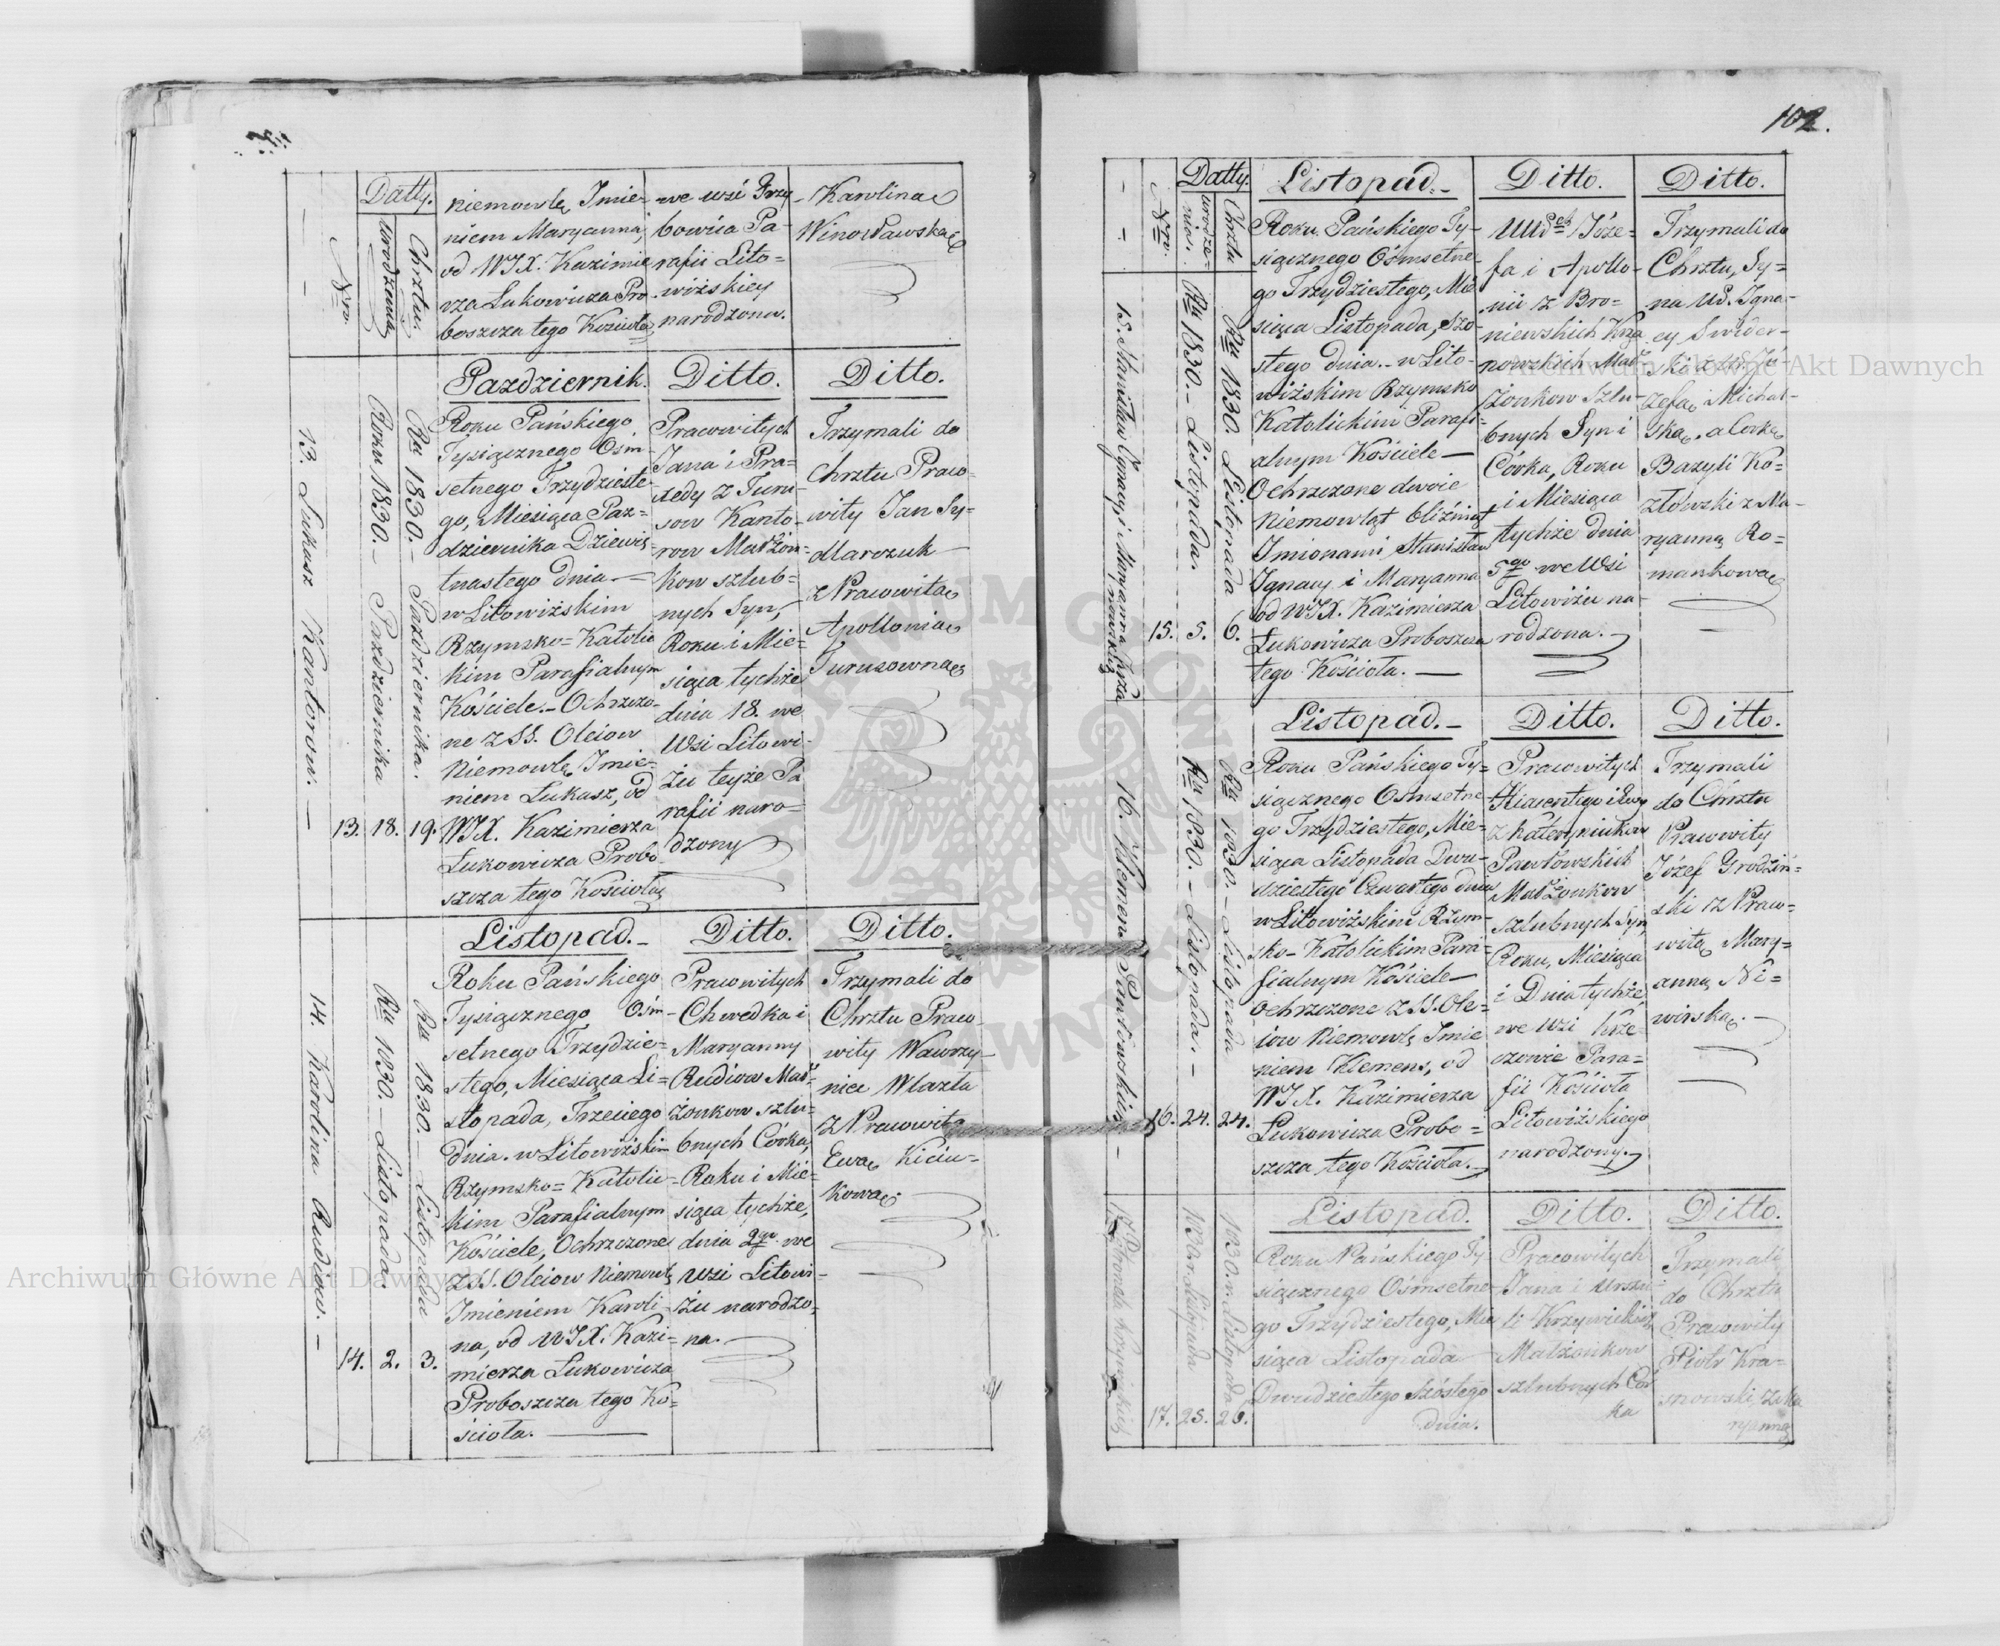 102.
Datty.
Nro.
urodzenia
Chrztu.
niemowlę Imie-
niem Maryanna,
od WJX. Kazimie
rza Łukowicza Pro-
boszcza tego Kościoła,
we wsi Przy-
bowića Pa-
rafii Lito-
wiżskiey
narodzona.
Karolina
Winosławska
13. Łukasz Kantorow. —
13.
Roku 1830. — Pazdziernika
18.
Ru 1830. — Pazdziernika.
19.
Pazdziernik.
Roku Pańskiego
Tysiącznego Ośm-
setnego Trzydzieste-
go, Miesiąca Paz-
dziernika Dziewię-
tnastego dnia —
w Litowiżskim
Rzymsko=Katolic
kim Parafialnym
Kościele. — Ochrzczo-
ne z SS. Oleiow
Niemowlę Imie-
niem Łukasz, od
WJX. Kazimierza
Łukowicza Probo-
szcza tego Kościoła
Ditto.
Pracowitych
Jana i Pra=
xedy z Turu-
sow Kanto-
row Małżon-
kow szlub=
nych Syn,
Roku i Mie-
siąca tychże
dnia 18. we
Wsi Litowi-
żu teyże Pa
rafii naro-
dzony
Ditto.
Trzymali do
Chrztu Praco-
wity Jan Sy-
Marczuk
z Pracowitą
Apollonią
Turusowną
14. Karolina Rudiow. —
14.
Ru 1830. — Listopada.
2.
Ru 1830. — Listopada
3.
Listopad. —
Roku Pańskiego
Tysiącznego Ośm-
setnego Trzydzie-
stego, Miesiąca Li=
stopada, Trzeciego
dnia. w Litowiżskim
Rzymsko=Katolic-
kim Parafialnym
Kościele, Ochrzczone
z SS. Oleiow Niemowlę
Imieniem Karoli-
na, od WJX. Kazi-
mierza Łukowicza
Proboszcza tego Ko=
ścioła. —
Ditto.
Pracowitych
Chwedka i
Maryanny
Rudiow Mał-
żonkow szlu-
bnych Córka,
Roku i Mie-
siąca tychże,
dnia 2go we
Wsi Litowi-
żu narodzo-
na. —
Ditto.
Trzymali do
Chrztu Praco
wity Wawrzy-
niec Wlazło
z Pracowitą
Ewą Kiciu-
kową.
Nro.
Datty.
urodze=
nia.
Chrztu
15. Stanisław Ignacy i Maryanna Kna
nowskich
15.
Ru 1830. — Listopada.
5.
Ru 1830. Listopada
6.
Listopad. —
Roku Pańskiego Ty-
siącznego Ośmsetne-
go Trzydziestego, Mie
siąca Listopada, Szo-
stego dnia. — w Lito-
wiżskim Rzymsko
Katolickim Parafi-
alnym Kościele —
Ochrzczone dwoie
Niemowląt bliźniąt
Imionami Stanisław
Ignacy i Maryanna
od WJX. Kazimierza
Łukowicza Proboszcza
tego Kościoła. —
Ditto.
UUrch Józe-
fa i Apollo-
nii z Bro-
niewskich Kna
nowskich Mał-
żonkow Szlu-
bnych Syn i
Córka, Roku
i Miesiąca
tychże dnia
5go we Wsi
Litowiżu na-
rodzona. —
Ditto.
Trzymali do
Chrztu, Sy=
na Ur. Igna-
cy Swider-
ski z Ur. Jó-
zefą Michal-
ską, a Corkę
Bazyli Ko=
złowski z Ma-
ryanną Ro=
mankową
16. Klemens Pawłowskich. —
16.
Ru 1830. — Listopada. —
24.
Ru 1830. — Listopada
24.
Listopad. —
Roku Pańskiego Ty=
siącznego Ośmsetne-
go Trzydziestego, Mie-
siąca Listopada Dwu-
dziestego Czwartego dnia
w Litowiżskim Rzym-
sko-Katolickim Para-
fialnym Kościele —
ochrzczone z SS. Ole-
iow Niemowlę Imie
niem Klemens, od
WJX. Kazimierza
Łukowicza Probo=
szcza tego Kościoła. —
Ditto.
Pracowitych
Hiacentego i Ewy
z Kateryniukow
Pawłowskich
Małżonkow
szlubnych Syn
Roku, Miesiąca
i Dnia tychże
we Wsi Krze-
czowie Para=
fii Kościoła
Litowiżskiego
narodzony. —
Ditto.
Trzymali
do Chrztu
Pracowity
Józef Grodziń-
ski z Praco-
witą Mary-
anną Ni=
wirską. —
17.
1830. r. Listopada
25.
1830. r. Listopada
26.
Listopad.
Roku Pańskiego Ty
siącznego Ośmsetne-
go Trzydziestego, Mie
siąca Listopada
Dwudziestego Szóstego
dnia.
Ditto.
Pracowitych
Jana i Urszu
li Krzywickich
Małżonkow
szlubnych Cór
ka
Ditto.
Trzymali
do Chrztu
Pracowity
Piotr Kra=
snowski z Ma
ryanną
Archiwum Główne Akt Dawnych
Archiwum Główne Akt Dawnych
ARCHIWUM GŁÓWNE AKT DAWNYCH